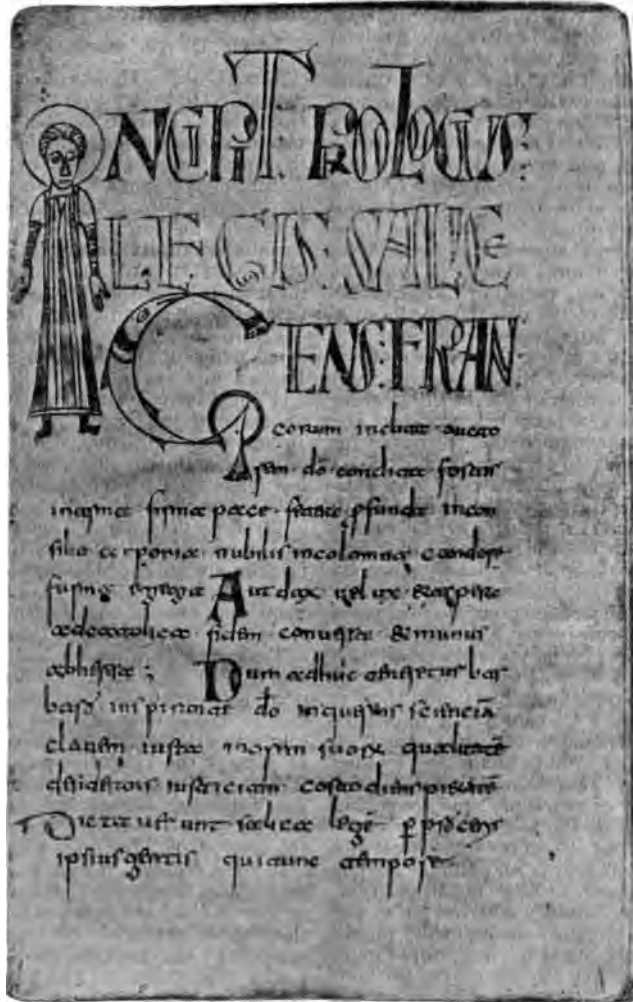 INCIPIT PROLOGUS:
LEGIS SALICE
GENS: FRAN
corum inclita aucto
rem do condita fortis
in arma firma pace pfunda in con
silio corporia nubilis incolomna candore
forma egregia Autdax uelox & aspera
ad catolica fidem conuersa & inmunis
ab heresa; Dum adhuc teneretur bar
bara inspirante do inquerens sciencia
clauem iusta morum suorum qualitate
desiderans iusticiam costodiens pietate
Dictauerunt salica lege p
ipsius gentis qui tunc tempore